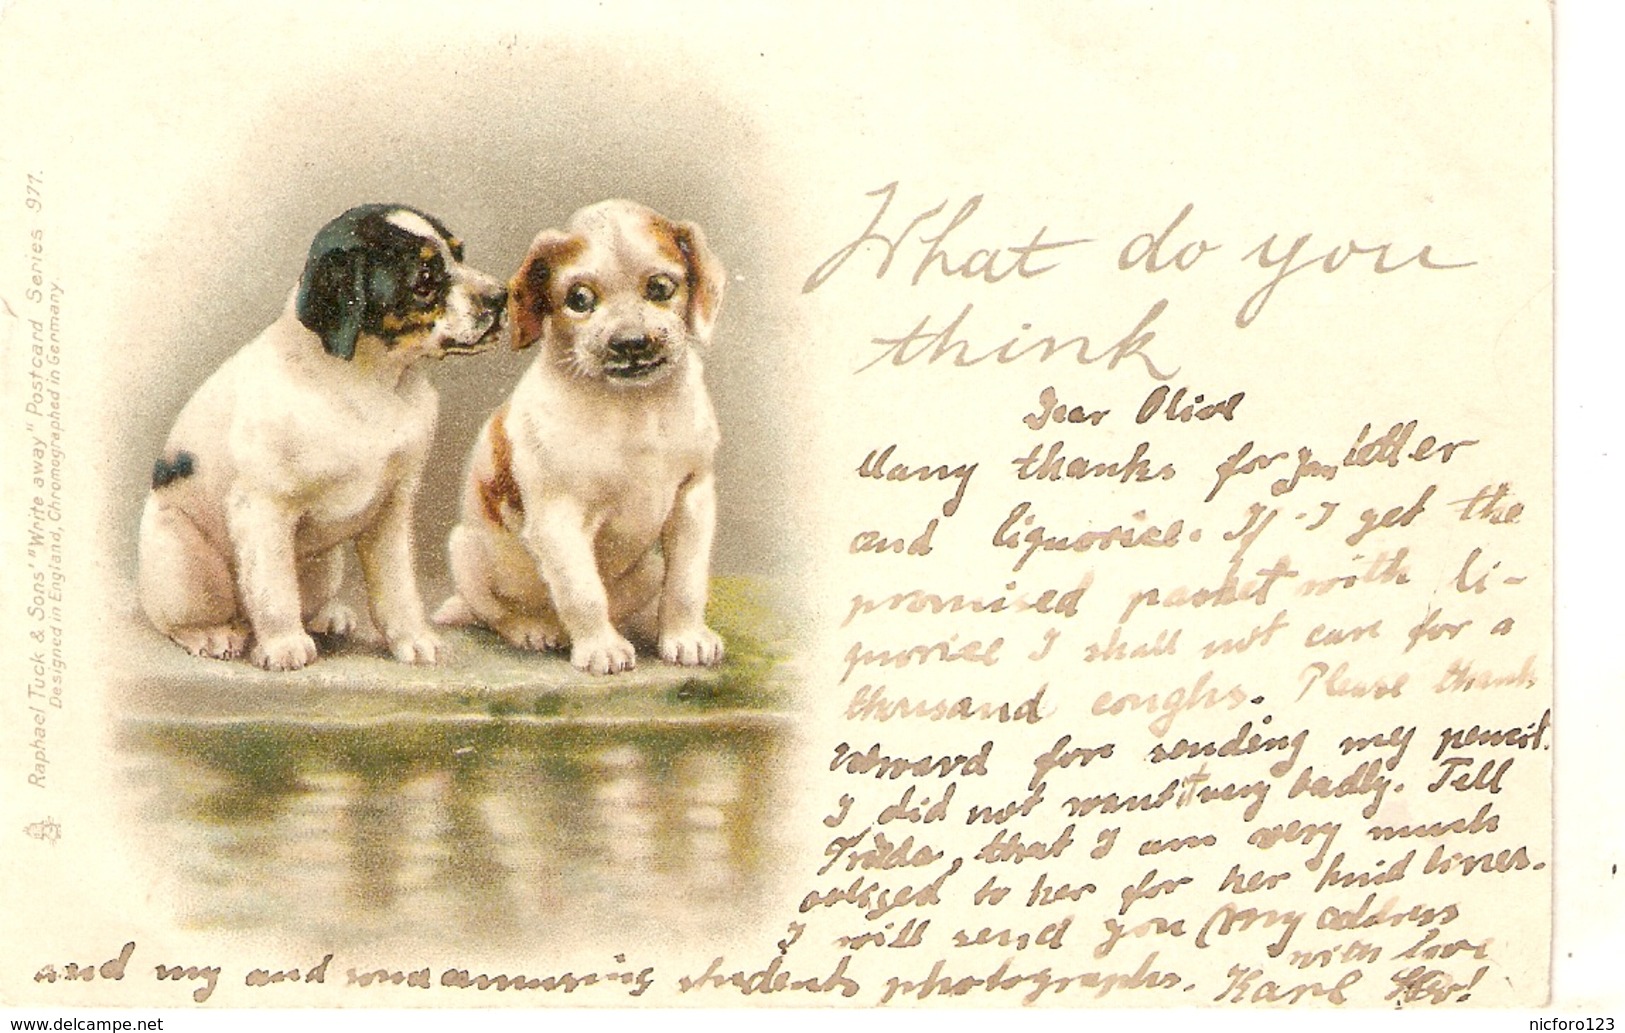 Raphael Tuck & Sons' "Write away" Postcard Series 971.
Designed in England, Chromographed in Germany.
What do you
think
Dear Olive
Many thanks for your letter
and liquorice. If I get the
promised packet with li-
quorice I shall not care for a
thousand coughs. Please thank
for sending my pencil.
I did not want it very badly. Tell
Frieda, that I am very much
obliged to her for her kind lines.
I will send you (my address
and my and some amusing students photographs.
with love
Karl
www.delcampe.net
nicforo123